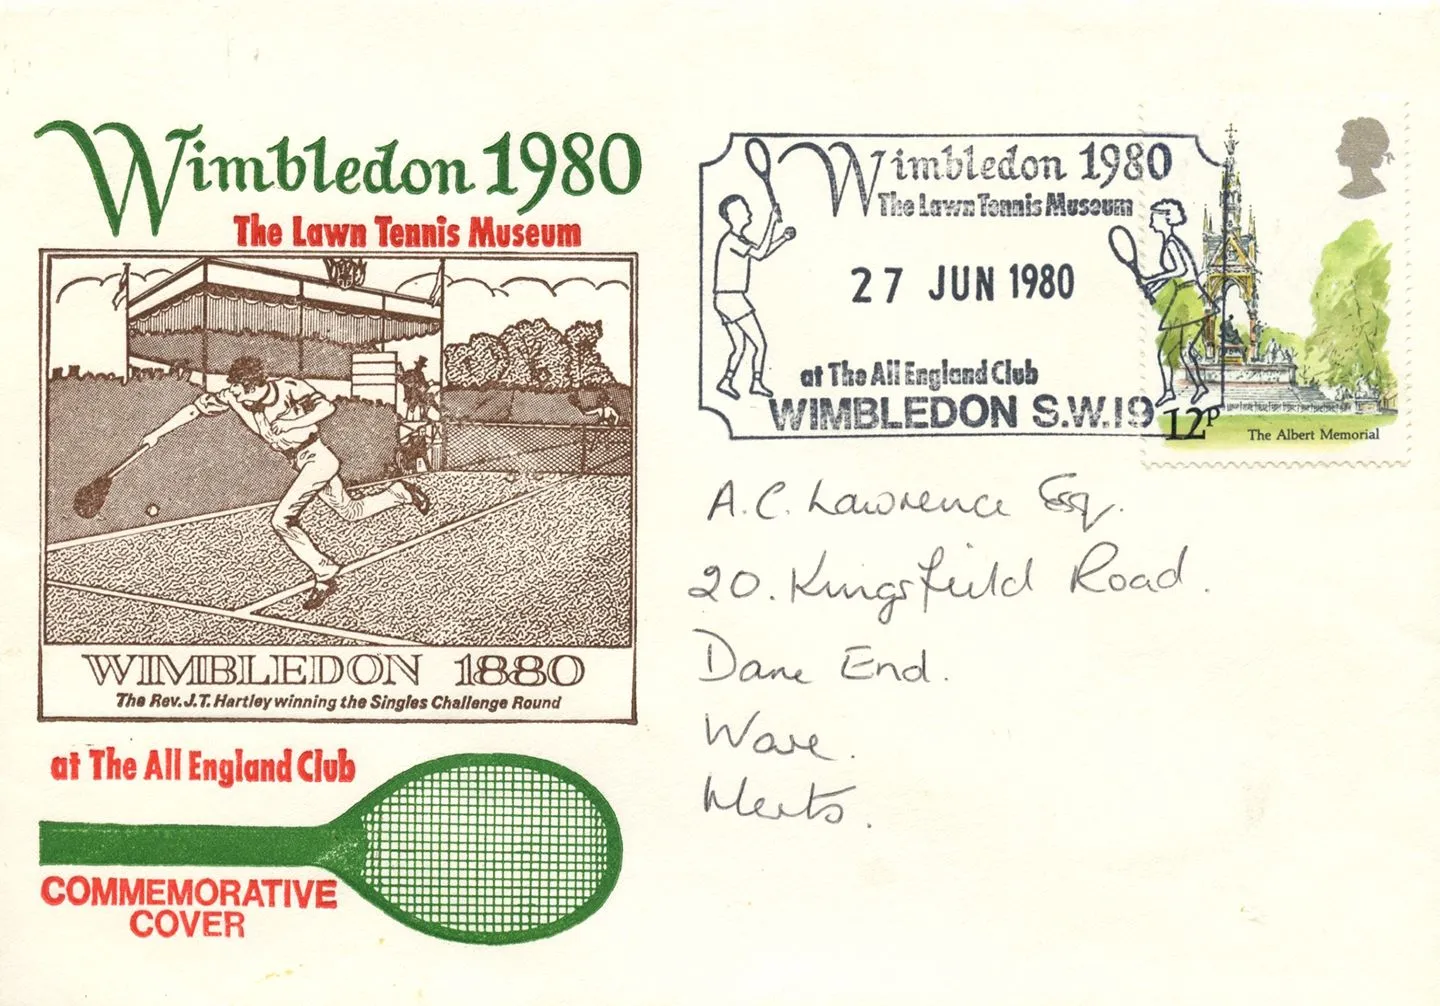 Wimbledon 1980
The Lawn Tennis Museum
WIMBLEDON 1880
The Rev. J.T. Hartley winning the Singles Challenge Round
at The All England Club
COMMEMORATIVE
COVER
Wimbledon 1980
The Lawn Tennis Museum
27 JUN 1980
at The All England Club
WIMBLEDON S.W.19
12P
The Albert Memorial
A.C. Lawrence Esq.
20. Kingsfield Road.
Dane End.
Ware.
Herts.